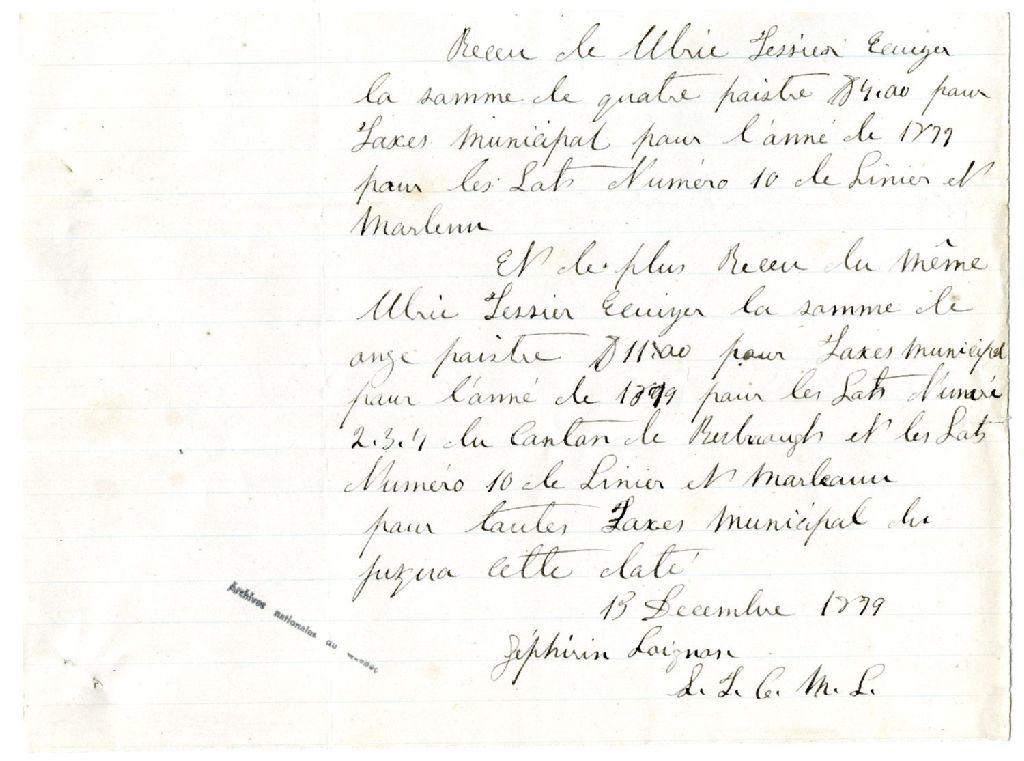 Receu de Ulric Tessier Ecuiyer
la somme de quatre paistre $4.00 pour
Taxes Municipal pour l'anné de 1879
pour les Lots Numéro 10 de Linier et
Marlow
Et de plus Receu du même
Ulric Tessier Ecuiyer la somme de
onze paistre $11.00 pour Taxes Municipal
pour l'anné de 1879 pour les Lots Numéro
2.3.4 du Canton de et les Lots
Numéro 10 de Linier et
pour toutes Taxes Municipal du
cette daté
13 Decembre 1879
Zéphirin Loignon
S. T. C. M. L.
Archives nationales du Québec